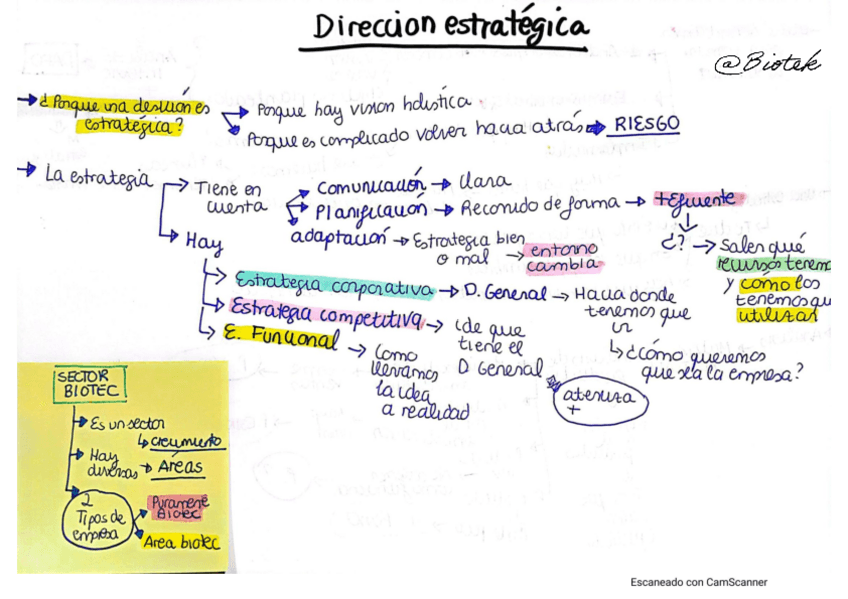 Direccion estratégica
@Biotek
¿Porque una desición es
estratégica?
Porque hay vision holística
Porque es complicado volver hacia atrás → RIESGO
La estrategia
Tiene en
cuenta
Comunicación → Clara
Planificación → Recorrido de forma → + Eficiente
adaptación → Estrategia bien
o mal → entorno
cambia
¿? → Saber qué
recursos tenem
y cómo los
tenemos qu
utilizar
Hay
Estrategia corporativa → D. General → Hacia donde
tenemos que
ir
¿cómo queremos
que sea la empresa?
Estrategia competitiva → idea que
tiene el
D General
aterriza
+
E. Funcional → Como
llevamos
la idea
a realidad
SECTOR
BIOTEC
Es un sector
crecimiento
Hay
diversas → Áreas
2
Tipos de
empresa
Puramente
Biotec
Area biotec
Escaneado con CamScanner